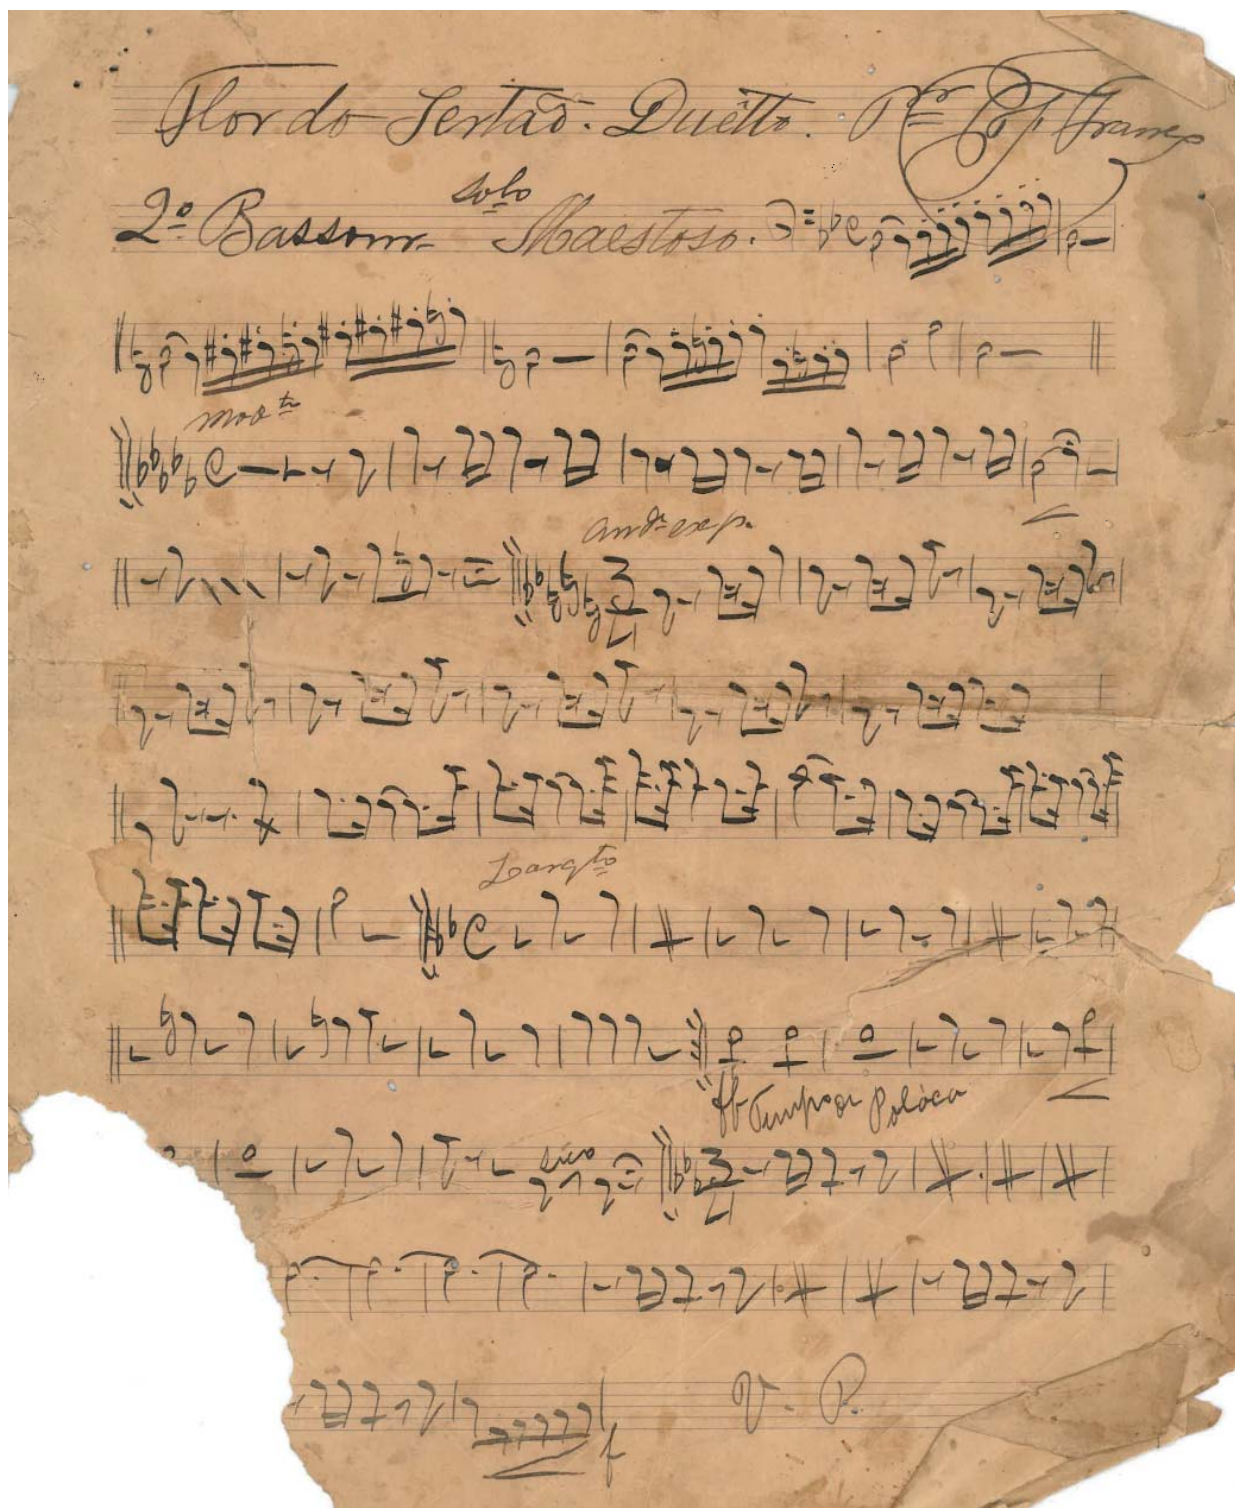 Flor do Sertaõ. Duêtto. Por C. F. Franco
2º Bassom solo Maestoso.
Modto
Andte exp.
Largto
ff Tempo di Poláca
V. P.
f